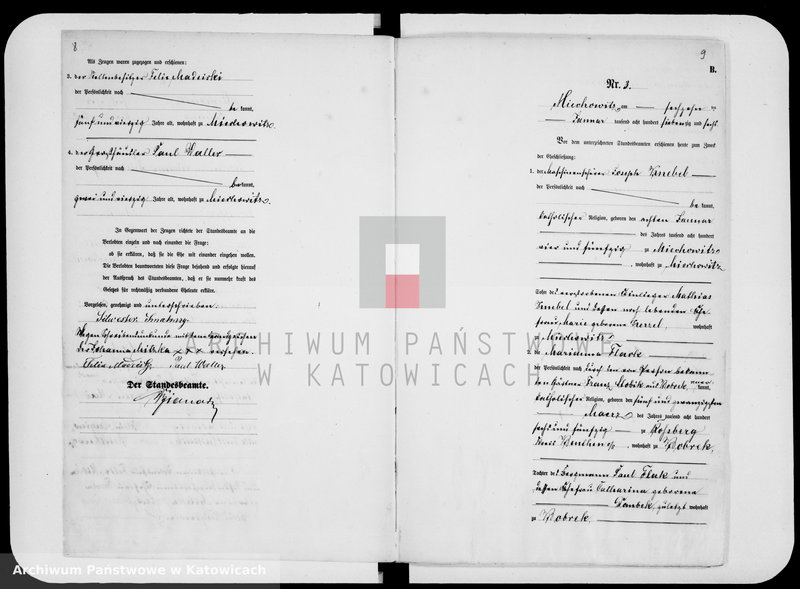 8
Als Zeugen waren zugezogen und erschienen:
3. der Stellenbesitzer Felix Madeiski
der Persönlichkeit nach
be kannt,
fünf und vierzig Jahre alt, wohnhaft zu Miechowitz
4. der Paul Waller
der Persönlichkeit nach
be kannt,
zwei und vierzig Jahre alt, wohnhaft zu Miechowitz
In Gegenwart der Zeugen richtete der Standesbeamte an die
Verlobten einzeln und nach einander die Frage:
ob sie erklären, daß sie die Ehe mit einander eingehen wollen.
Die Verlobten beantworteten diese Frage bejahend und erfolgte hierauf
der Ausspruch des Standesbeamten, daß er sie nunmehr kraft des
Gesetzes für rechtmäßig verbundene Eheleute erkläre.
Vorgelesen, genehmigt und unterschrieben:
Silvester
Wegen Schreibensunkunde mit Handzeichen
der Johanna xxx versehen.
Felix Paul Waller
Der Standesbeamte.
9
B.
Nr. 3.
Miechowitz am sechzehn ten
Januar tausend acht hundert siebenzig und sechs
Vor dem unterzeichneten Standesbeamten erschienen heute zum Zweck
der Eheschließung:
1. der Maschinenheizer Joseph Knebel
der Persönlichkeit nach
be kannt,
katholischer Religion, geboren den achten Januar
des Jahres tausend acht hundert
vier und fünfzig zu Miechowitz
, wohnhaft zu Miechowitz
Sohn des verstorbenen Einlieger Mathias
Knebel und dessen noch lebenden Ehe
frau Marie geborene wohnhaft
zu Miechowitz
2. die Marianna Flack
der Persönlichkeit nach durch den von Person bekann
ten Franz aus Bobrek kannt,
katholischer Religion, geboren den fünf und zwanzigsten
Maerz des Jahres tausend acht hundert
sechs und fünfzig zu Roßberg
Kreis Beuthen o/s, wohnhaft zu Bobrek
Tochter des Bergmann Paul Flak und
dessen Ehefrau Catharina geborene
Dombek, zuletzt wohnhaft
zu Bobrek
ARCHIWUM PAŃSTWOWE
W KATOWICACH
Archiwum Państwowe w Katowicach